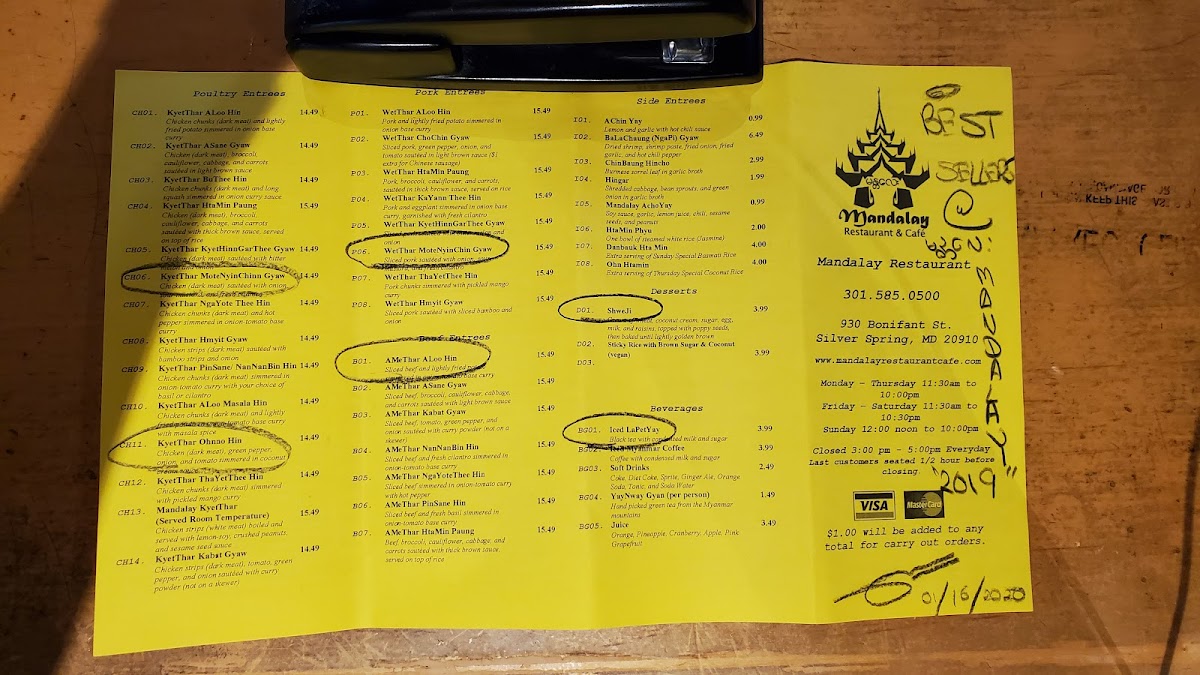 Poultry Entrees
CH01. KyetThar ALoo Hin 14.49
Chicken chunks (dark meat) and lightly
fried potato simmered in onion base
curry
CH02. KyetThar ASane Gyaw 14.49
Chicken (dark meat), broccoli,
cauliflower, cabbage, and carrots
sautéed in light brown sauce
CH03. KyetThar BuThee Hin 14.49
Chicken chunks (dark meat) and long
squash simmered in onion curry sauce
CH04. KyetThar HtaMin Paung 14.49
Chicken (dark meat), broccoli,
cauliflower, cabbage, and carrots
sautéed with thick brown sauce, served
on top of rice
CH05. KyetThar KyetHinnGarThee Gyaw 14.49
Chicken (dark meat) sautéed with bitter
CH06. KyetThar MoteNyinChinn Gyaw 14.49
Chicken (dark meat) sautéed with onion,
CH07. KyetThar NgaYote Thee Hin 14.49
Chicken chunks (dark meat) and hot
pepper simmered in onion-tomato base
curry
CH08. KyetThar Hmyit Gyaw 14.49
Chicken strips (dark meat) sautéed with
bamboo strips and onion
CH09. KyetThar PinSane/ NanNanBin Hin 14.49
Chicken chunks (dark meat) simmered in
onion-tomato curry with your choice of
basil or cilantro
CH10. KyetThar ALoo Masala Hin 14.49
Chicken chunks (dark meat) and lightly
with masala spice
CH11. KyetThar Ohnno Hin 14.49
Chicken (dark meat), green pepper,
onion, and tomato simmered in coconut
CH12. KyetThar ThaYetThee Hin 14.49
Chicken chunks (dark meat) simmered
with pickled mango curry
CH13. Mandalay KyetThar 15.49
(Served Room Temperature)
Chicken strips (white meat) boiled and
served with lemon-soy, crushed peanuts,
and sesame seed sauce
CH14. KyetThar Kabat Gyaw 14.49
Chicken strips (dark meat), tomato, green
pepper, and onion sautéed with curry
powder (not on a skewer)
Pork Entrees
P01. WetThar ALoo Hin 15.49
Pork and lightly fried potato simmered in
onion base curry
P02. WetThar ChoChin Gyaw 15.49
Sliced pork, green pepper, onion, and
tomato sautéed in light brown sauce ($1
extra for Chinese sausage)
P03. WetThar HtaMin Paung 15.49
Pork, broccoli, cauliflower, and carrots,
sautéed in thick brown sauce, served on rice
P04. WetThar KaYann Thee Hin 15.49
Pork and eggplant simmered in onion base
curry, garnished with fresh cilantro
P05. WetThar KyetHinnGarThee Gyaw 15.49
onion
P06. WetThar MoteNyinChin Gyaw 15.49
Sliced pork sautéed with onion, sour
P07. WetThar ThaYetThee Hin 15.49
Pork chunks simmered with pickled mango
curry
P08. WetThar Hmyit Gyaw 15.49
Sliced pork sautéed with sliced bamboo and
onion
Beef Entrees
B01. AMeThar ALoo Hin 15.49
Sliced beef and lightly fried potato
B02. AMeThar ASane Gyaw 15.49
Sliced beef, broccoli, cauliflower, cabbage,
and carrots sautéed with light brown sauce
B03. AMeThar Kabat Gyaw 15.49
Sliced beef, tomato, green pepper, and
onion sautéed with curry powder (not on a
skewer)
B04. AMeThar NanNanBin Hin 15.49
Sliced beef and fresh cilantro simmered in
onion-tomato base curry
B05. AMeThar NgaYoteThee Hin 15.49
Sliced beef simmered in onion-tomato curry
with hot pepper
B06. AMeThar PinSane Hin 15.49
Sliced beef and fresh basil simmered in
onion-tomato base curry
B07. AMeThar HtaMin Paung 15.49
Beef, cauliflower, cabbage, and
carrots sautéed with thick brown sauce,
served on top of rice
Side Entrees
I01. AChin Yay 0.99
Lemon and garlic with hot chili sauce
I02. BaLaChaung (NgaPi) Gyaw 6.49
Dried shrimp, shrimp paste, fried onion, fried
garlic, and hot chili pepper
I03. ChinBaung Hincho 2.99
Burmese sorrel leaf in garlic broth
I04. Hingar 1.99
Shredded cabbage, bean sprouts, and green
onion in garlic broth
I05. Mandalay AchoYay 0.99
Soy sauce, garlic, lemon juice, chili, sesame
seeds, and peanuts
I06. HtaMin Phyu 2.00
One bowl of steamed white rice (Jasmine)
I07. Danbauk Hta Min 4.00
Extra serving of Sunday Special Basmati Rice
I08. Ohn Htamin 4.00
Extra serving of Thursday Special Coconut Rice
Desserts
D01. ShweJi 3.99
coconut cream, sugar, egg,
milk, and raisins, topped with poppy seeds,
then baked until lightly golden brown
D02. Sticky Rice with Brown Sugar & Coconut
(vegan) 3.99
D03.
Beverages
BG01. Iced LaPetYay 3.99
Black tea with condensed milk and sugar
BG02. Iced Myanmar Coffee 3.99
Coffee with condensed milk and sugar
BG03. Soft Drinks 2.49
Coke, Diet Coke, Sprite, Ginger Ale, Orange
Soda, Tonic, and Soda Water
BG04. YayNway Gyan (per person) 1.49
Hand picked green tea from the Myanmar
mountains
BG05. Juice 3.49
Orange, Pineapple, Cranberry, Apple, Pink
Grapefruit
BEST
SELLERS
@
MANDALAY
"2019"
မန္တလေး
Mandalay
Restaurant & Café
Mandalay Restaurant
301.585.0500
930 Bonifant St.
Silver Spring, MD 20910
www.mandalayrestaurantcafe.com
Monday - Thursday 11:30am to
10:00pm
Friday - Saturday 11:30am to
10:30pm
Sunday 12:00 noon to 10:00pm
Closed 3:00 pm - 5:00pm Everyday
Last customers seated 1/2 hour before
closing
VISA MasterCard
$1.00 will be added to any
total for carry out orders.
01/16/2020
KEEP THIS